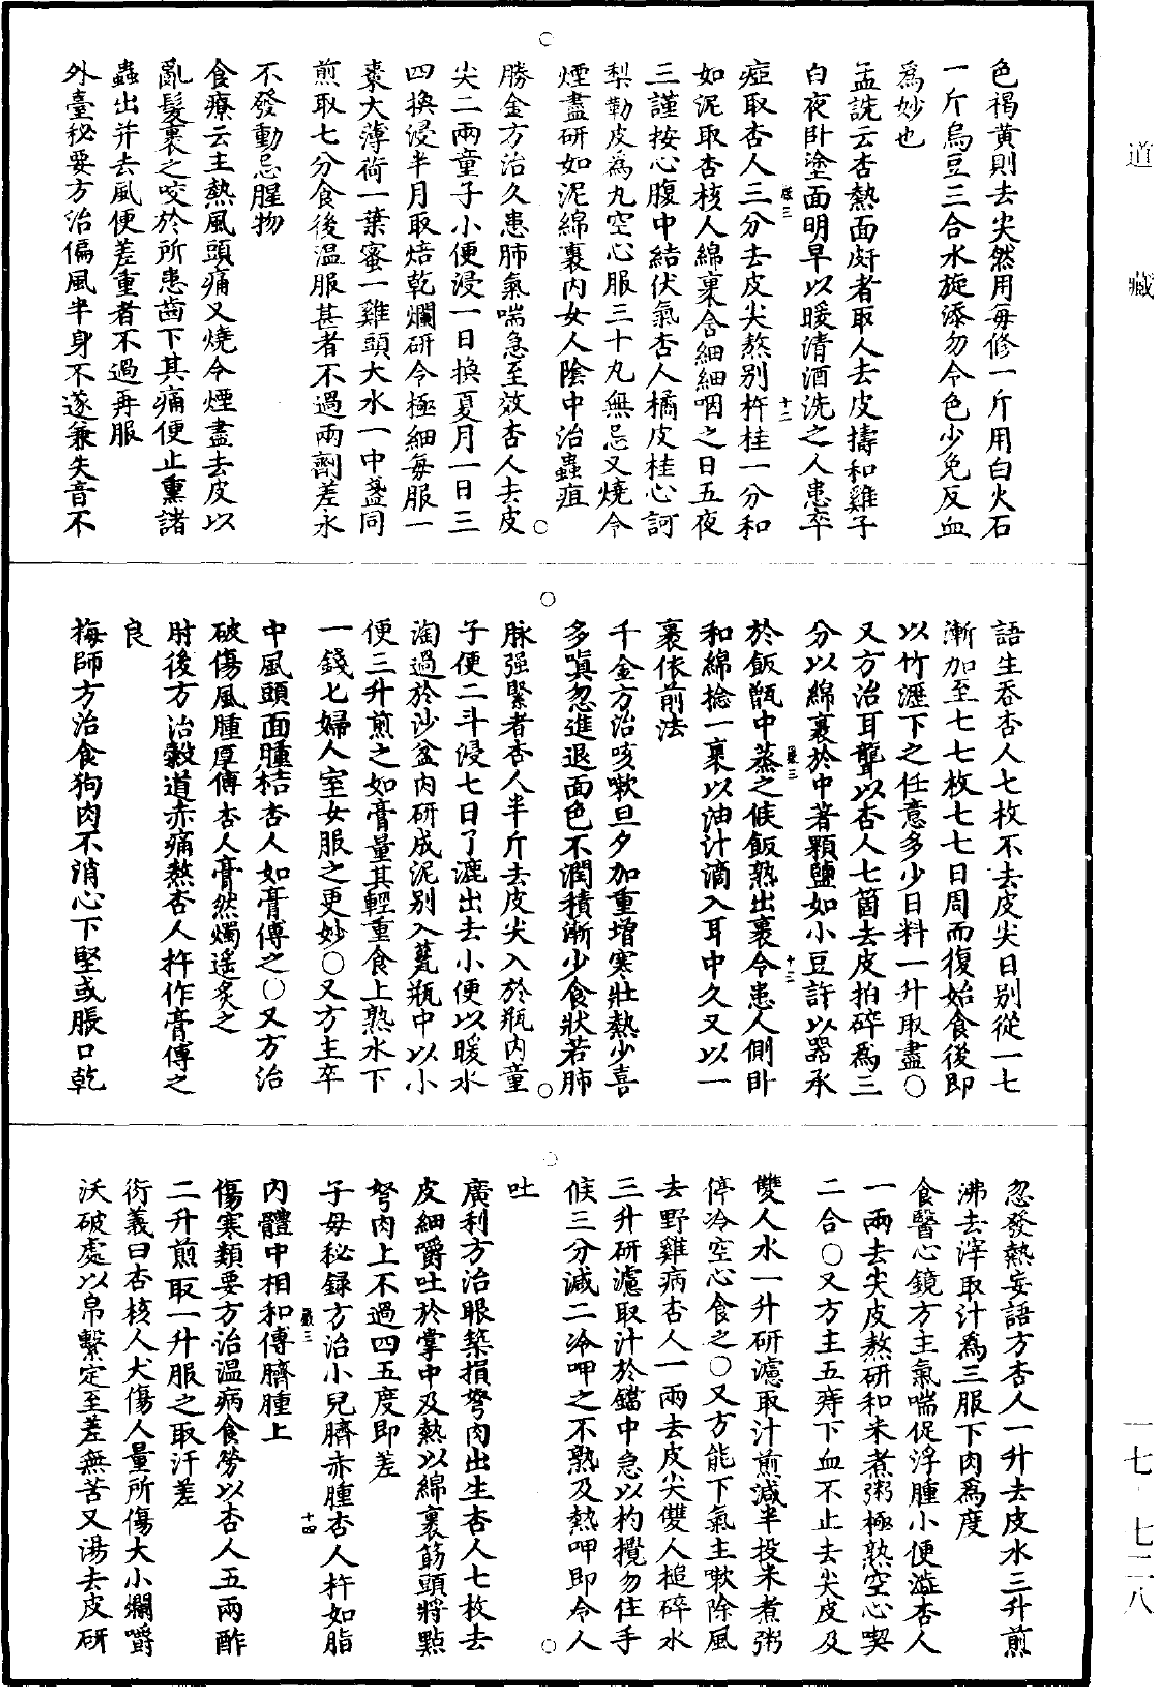 道藏
色褐黄則去尖然用每修一斤用白火石
一斤烏豆三合水旋添勿令色少免反血
為妙也
孟詵云杏熱面皯者取人去皮擣和雞子
白夜卧塗面明早以暖清酒洗之人患卒
瘂取杏人三分去皮尖熬别杵桂一分和
如泥取杏核人綿裹含細細咽之日五夜
三謹按心腹中結伏氣杏人橘皮桂心訶
梨勒皮為丸空心服三十丸無忌又燒令
煙盡研如泥綿裹内女人陰中治蟲疽
勝金方治久患肺氣喘急至效杏人去皮
尖二兩童子小便浸一日換夏月一日三
四換浸半月取焙乾爛研令極細每服一
棗大薄荷一葉蜜一雞頭大水一中盞同
煎取七分食後温服甚者不過兩劑差永
不發動忌腥物
食療云主熱風頭痛又燒令煙盡去皮以
亂髮裹之咬於所患齒下其痛便止熏諸
蟲出并去風便差重者不過再服
外臺秘要方治偏風半身不遂兼失音不
語生吞杏人七枚不去皮尖日别從一七
漸加至七七枚七七日周而復始食後即
以竹瀝下之任意多少日料一升取盡○
又方治耳聾以杏人七箇去皮拍碎為三
分以綿裹於中著顆鹽如小豆許以器承
於飯甑中蒸之候飯熟出裹令患人側卧
和綿捻一裹以油汁滴入耳中久又以一
裹依前法
千金方治咳嗽旦夕加重增寒壯熱少喜
多嗔忽進退面色不潤積漸少食狀若肺
脉强緊者杏人半斤去皮尖入於瓶内童
子便二斗浸七日了漉出去小便以暖水
淘過於沙盆内研成泥别入甆瓶中以小
便三升煎之如膏量其輕重食上熟水下
一錢匕婦人室女服之更妙○又方主卒
中風頭面腫桔杏人如膏傅之○又方治
破傷風腫厚傅杏人膏然燭遥炙之
肘後方治穀道赤痛熬杏人杵作膏傅之
良
梅師方治食狗肉不消心下堅或脹口乾
忽發熱妄語方杏人一升去皮水三升煎
沸去滓取汁為三服下肉為度
食醫心鏡方主氣喘促浮腫小便澁杏人
一兩去尖皮熬研和米煮粥極熟空心喫
二合○又方主五痔下血不止去尖皮及
雙人水一升研濾取汁煎減半投米煮粥
停冷空心食之○又方能下氣主嗽除風
去野雞病杏人一兩去皮尖雙人搥碎水
三升研濾取汁於鐺中急以杓攪勿住手
候三分減二冷呷之不熟及熱呷即令人
吐
廣利方治眼築損弩肉出生杏人七枚去
皮細嚼吐於掌中及熱以綿裹筯頭將點
弩肉上不過四五度即差
子母秘録方治小兒臍赤腫杏人杵如脂
内體中相和傅臍腫上
傷寒類要方治温病食勞以杏人五兩酢
二升煎取一升服之取汗差
衍義曰杏核人犬傷人量所傷大小爛嚼
沃破處以帛繫定至差無苦又湯去皮研
一七·七二八